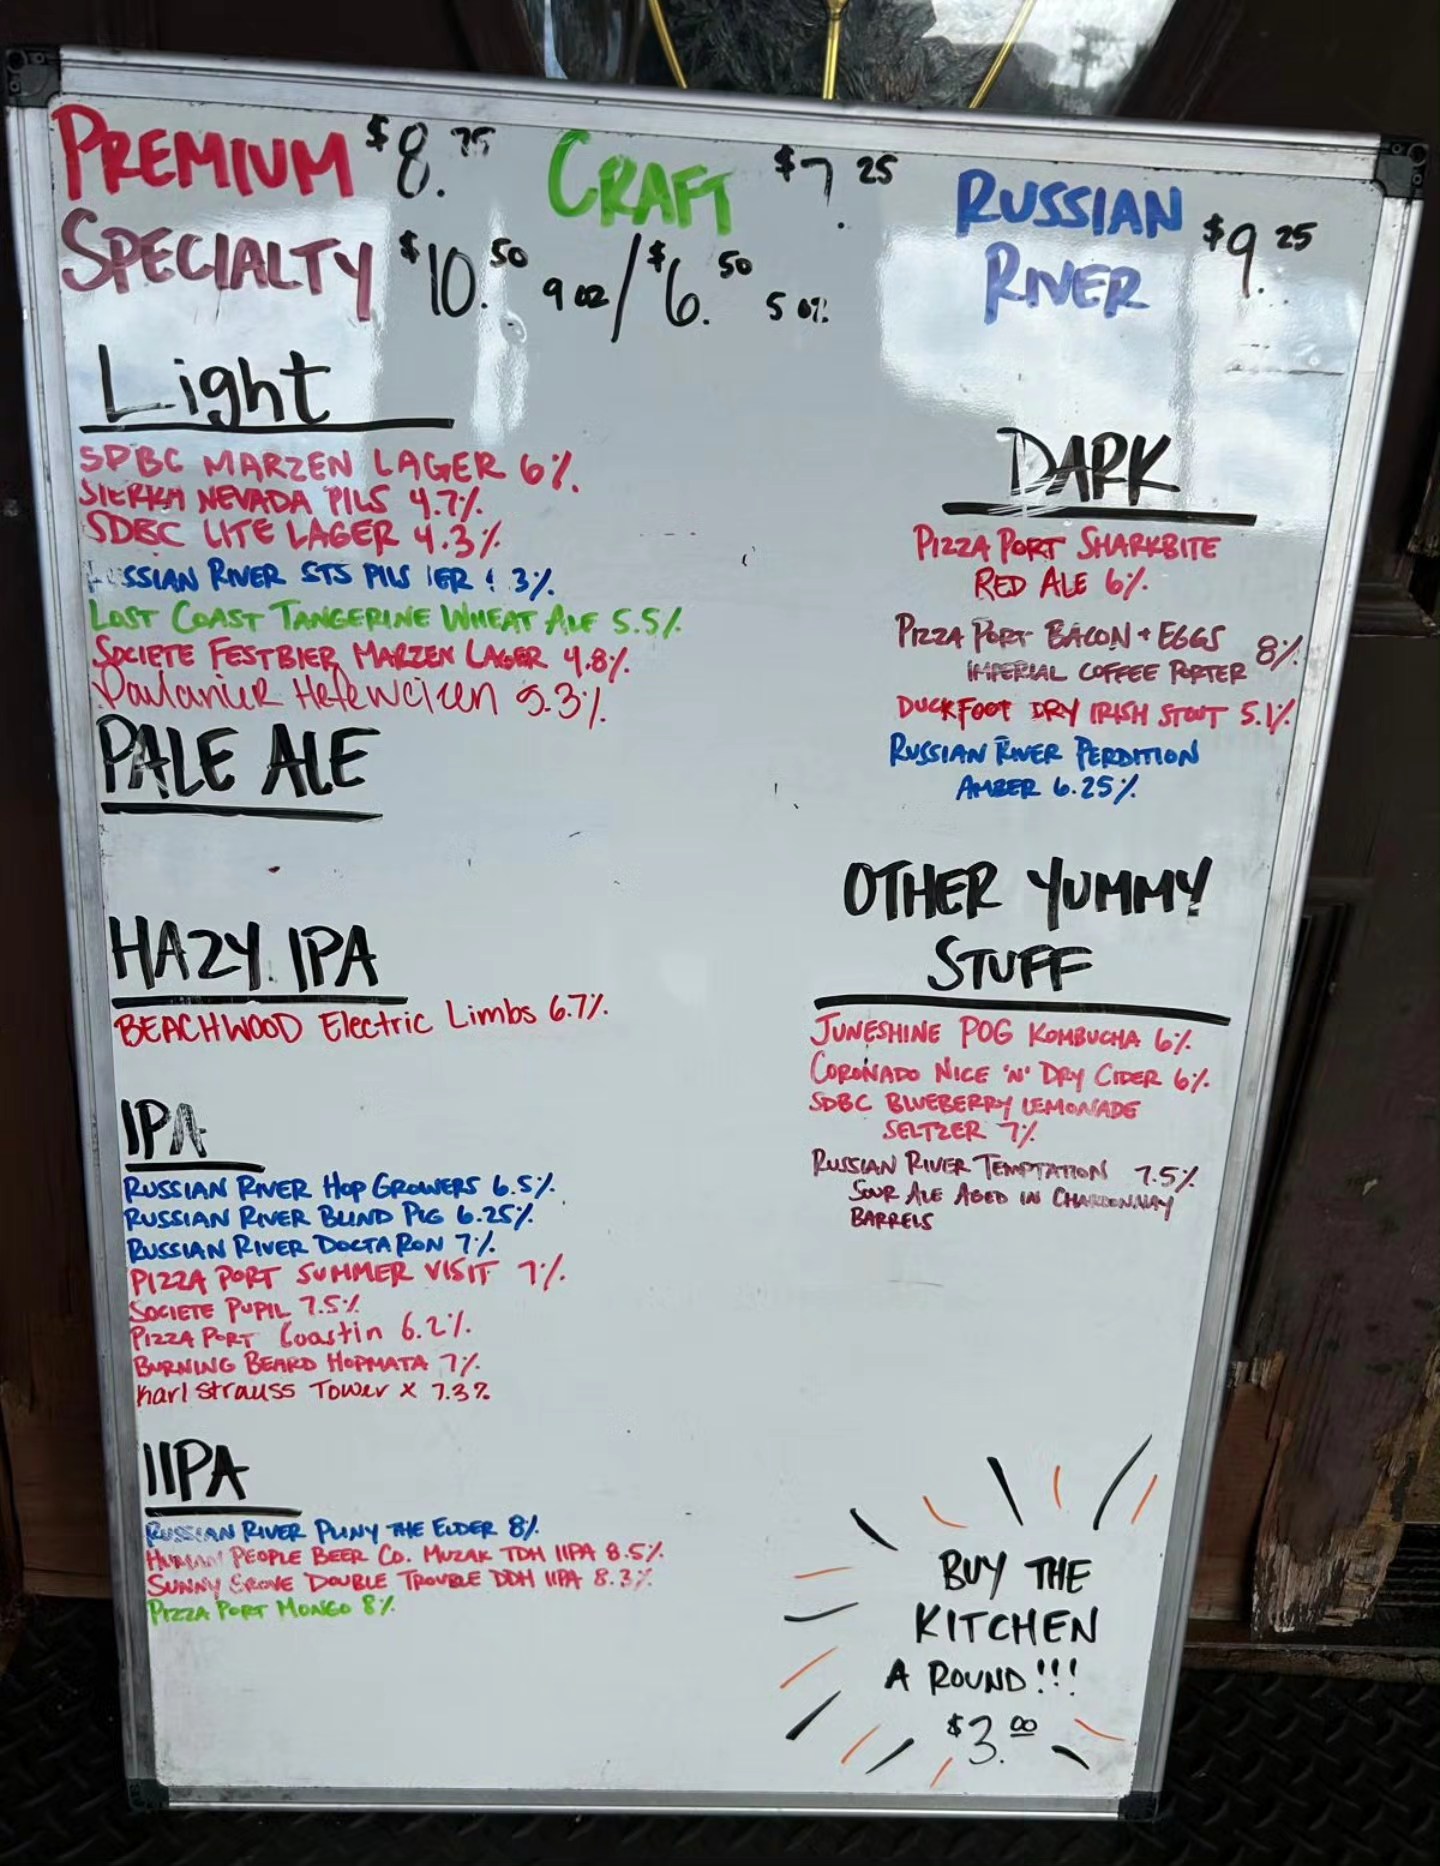 PREMIUM $8.75
CRAFT $7.25
RUSSIAN
RIVER $9.25
SPECIALTY $10.50 9oz/$6.50 5oz
Light
SDBC MARZEN LAGER 6%
SIERRA NEVADA PILS 4.7%
SDBC LITE LAGER 4.3%
SSIAN RIVER STS PILS ER 3%
LOST COAST TANGERINE WHEAT ALE 5.5%
SOCIETE FESTBIER MARZEN LAGER 4.8%
Hefeweizen 5.3%
PALE ALE
HAZY IPA
BEACHWOOD Electric Limbs 6.7%
IPA
RUSSIAN RIVER HOP GROWERS 6.5%
RUSSIAN RIVER BLIND PIG 6.25%
RUSSIAN RIVER DOCTA RON 7%
PIZZA PORT SUMMER VISIT 7%
SOCIETE PUPIL 7.5%
PIZZA PORT Coastin 6.2%
BURNING BEARD HOPMATA 7%
Karl Strauss Tower X 7.3%
IIPA
RUSSIAN RIVER PLINY THE ELDER 8%
HUMAN PEOPLE BEER CO. MUZAK TDH IIPA 8.5%
SUNNY GROVE DOUBLE TROUBLE DDH IIPA 8.3%
PIZZA PORT MONGO 8%
DARK
PIZZA PORT SHARKBITE
RED ALE 6%
PIZZA PORT BACON + EGGS 8%
IMPERIAL COFFEE PORTER
DUCKFOOT DRY IRISH STOUT 5.1%
RUSSIAN RIVER PERDITION
AMBER 6.25%
OTHER YUMMY
STUFF
JUNESHINE POG KOMBUCHA 6%
CORONADO NICE 'N' DRY CIDER 6%
SDBC BLUEBERRY LEMONADE
SELTZER 7%
RUSSIAN RIVER TEMPTATION 7.5%
SOUR ALE AGED IN CHARDONNAY
BARRELS
BUY THE
KITCHEN
A ROUND!!!
$3.00